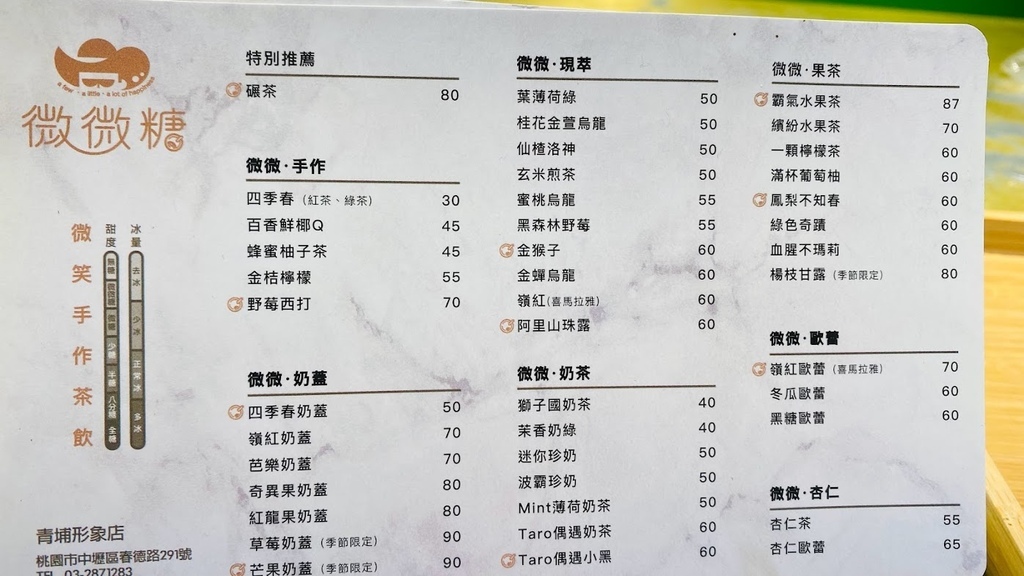 a few · a little · a lot of happiness
微微糖
微笑手作茶飲
甜度
無糖
微微糖
微糖
少糖
半糖
八分糖
全糖
冰量
去冰
少冰
正常冰
多冰
青埔形象店
桃園市中壢區春德路291號
TEL 03-2871283
特別推薦
碾茶 80
微微·手作
四季春（紅茶、綠茶） 30
百香鮮椰Q 45
蜂蜜柚子茶 45
金桔檸檬 55
野莓西打 70
微微·奶蓋
四季春奶蓋 50
嶺紅奶蓋 70
芭樂奶蓋 70
奇異果奶蓋 80
紅龍果奶蓋 80
草莓奶蓋（季節限定） 90
芒果奶蓋（季節限定） 90
微微·現萃
葉薄荷綠 50
桂花金萱烏龍 50
仙楂洛神 50
玄米煎茶 50
蜜桃烏龍 55
黑森林野莓 55
金猴子 60
金蟬烏龍 60
嶺紅(喜馬拉雅) 60
阿里山珠露 60
微微·奶茶
獅子國奶茶 40
茉香奶綠 40
迷你珍奶 50
波霸珍奶 50
Mint薄荷奶茶 50
Taro偶遇奶茶 60
Taro偶遇小黑 60
微微·果茶
霸氣水果茶 87
繽紛水果茶 70
一顆檸檬茶 60
滿杯葡萄柚 60
鳳梨不知春 60
綠色奇蹟 60
血腥不瑪莉 60
楊枝甘露（季節限定） 80
微微·歐蕾
嶺紅歐蕾（喜馬拉雅） 70
冬瓜歐蕾 60
黑糖歐蕾 60
微微·杏仁
杏仁茶 55
杏仁歐蕾 65